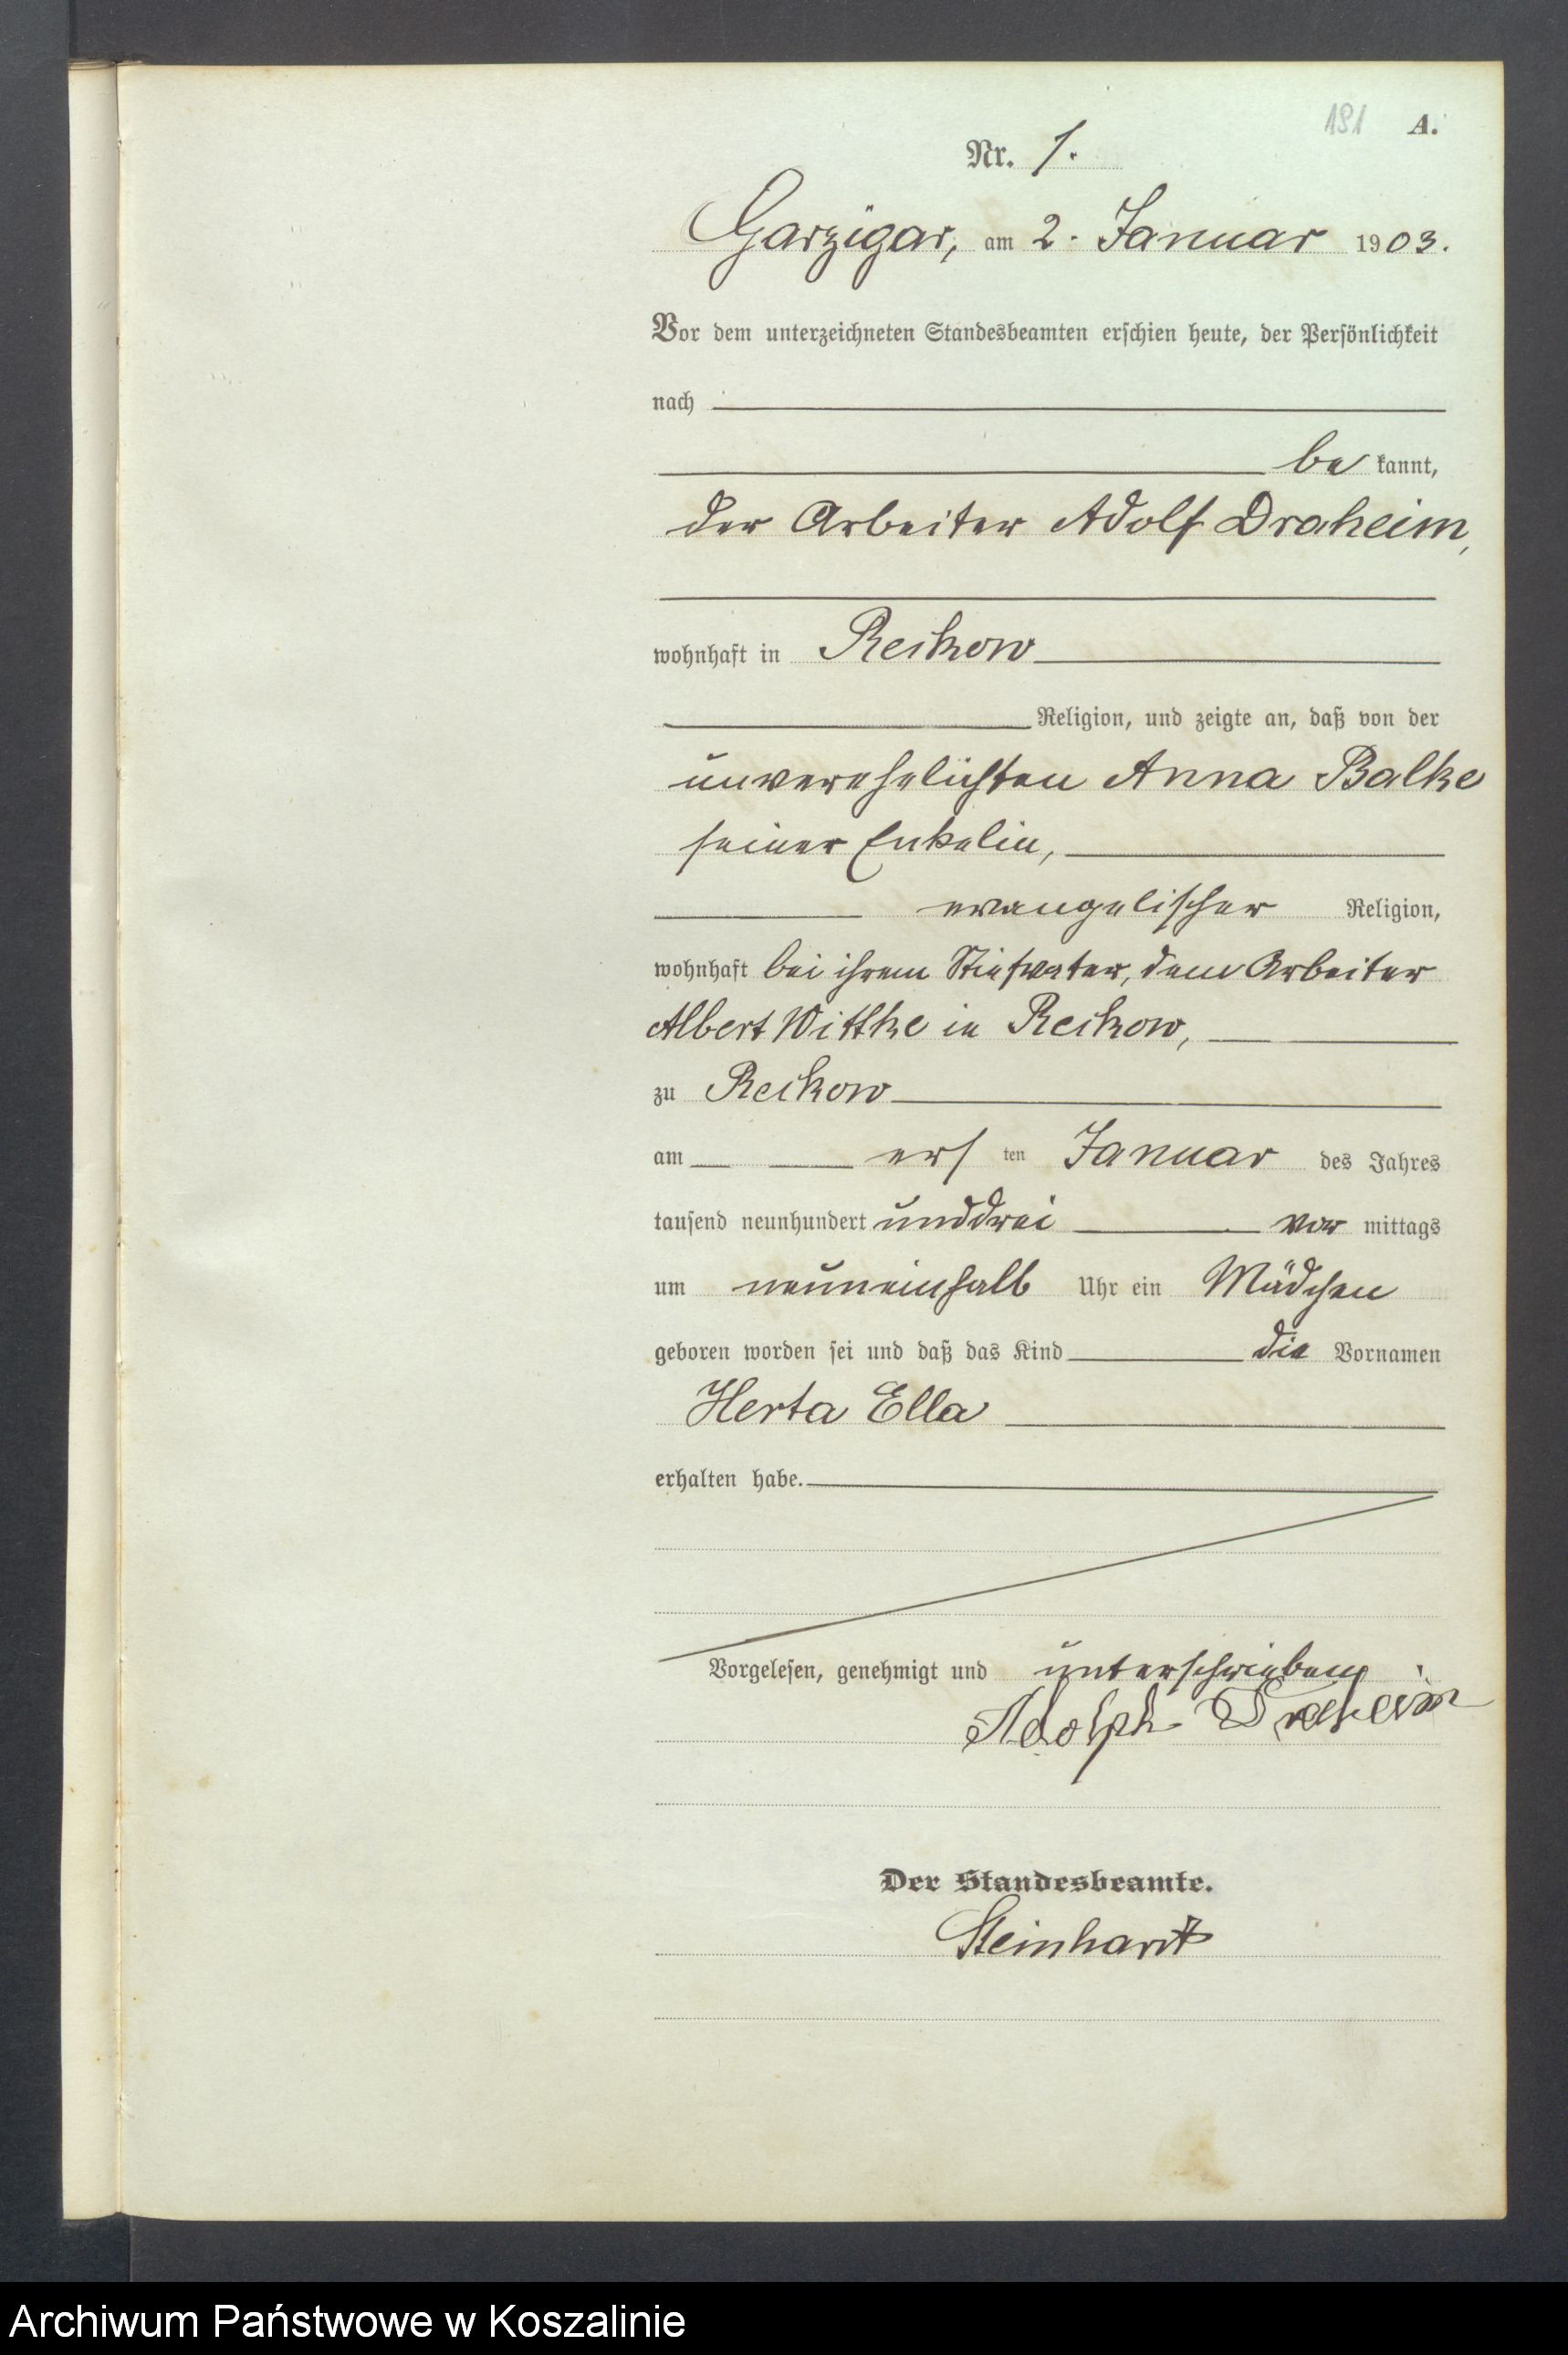 191 A.
Nr. 1.
Garzigar, am 2. Januar 1903.
Vor dem unterzeichneten Standesbeamten erschien heute, der Persönlichkeit
nach
be kannt,
der Arbeiter Adolf Draheim,
wohnhaft in Reckow
Religion, und zeigte an, daß von der
unverehelichten Anna Balke
seiner Enkelin,
evangelischer Religion,
wohnhaft bei ihrem Stiefvater, dem Arbeiter
Albert Wittke in Reckow,
zu Reckow
am ers ten Januar des Jahres
tausend neunhundert unddrei vor mittags
um neuneinhalb Uhr ein Mädchen
geboren worden sei und daß das Kind die Vornamen
Herta Ella
erhalten habe.
Vorgelesen, genehmigt und unterschrieben
Adolph Draheim
Der Standesbeamte.
Steinhardt
Archiwum Państwowe w Koszalinie